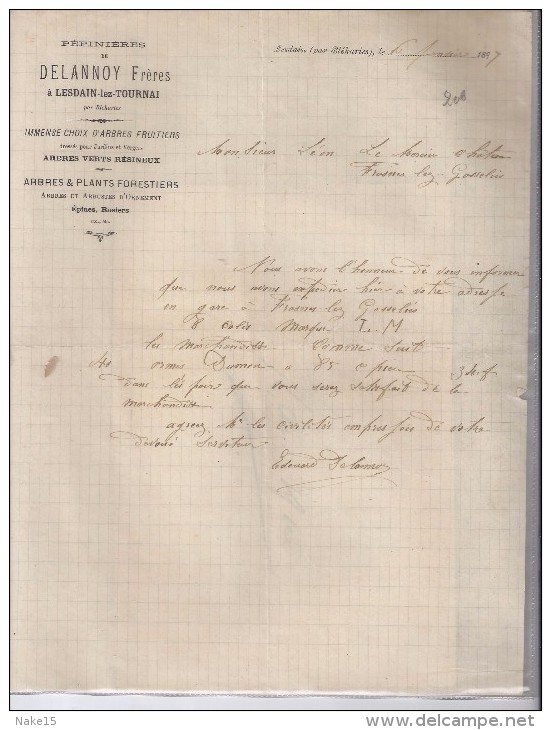 PÉPINIÈRES
DE
DELANNOY Frères
à LESDAIN-lez-TOURNAI
par Bléharies
IMMENSE CHOIX D'ARBRES FRUITIERS
dressés pour Jardins et Vergers
ARBRES VERTS RÉSINEUX
ARBRES & PLANTS FORESTIERS
ARBRES ET ARBUSTES D'ORNEMENT
Épines, Rosiers
Lesdain, (par Bléharies), le 6 1897
Monsieur Léon Le
Frasnes lez Gosselies
Nous avons l'honneur de vous informer
que nous avons expédier hier à votre adresse
en gare à Frasnes lez Gosselies
8 colis Marque L. M
les marchandises Comme Suit
40 ormes à 85 c 34 f
dans l'espoir que vous serez satisfait de la
marchandise
agreez Mr les civilités empressées de votre
dévoué Serviteur
Edouard Delannoy
Nake15
www.delcampe.net